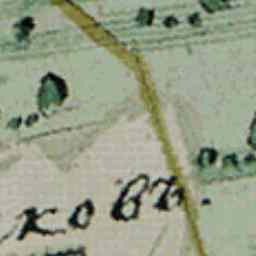 ковъ.